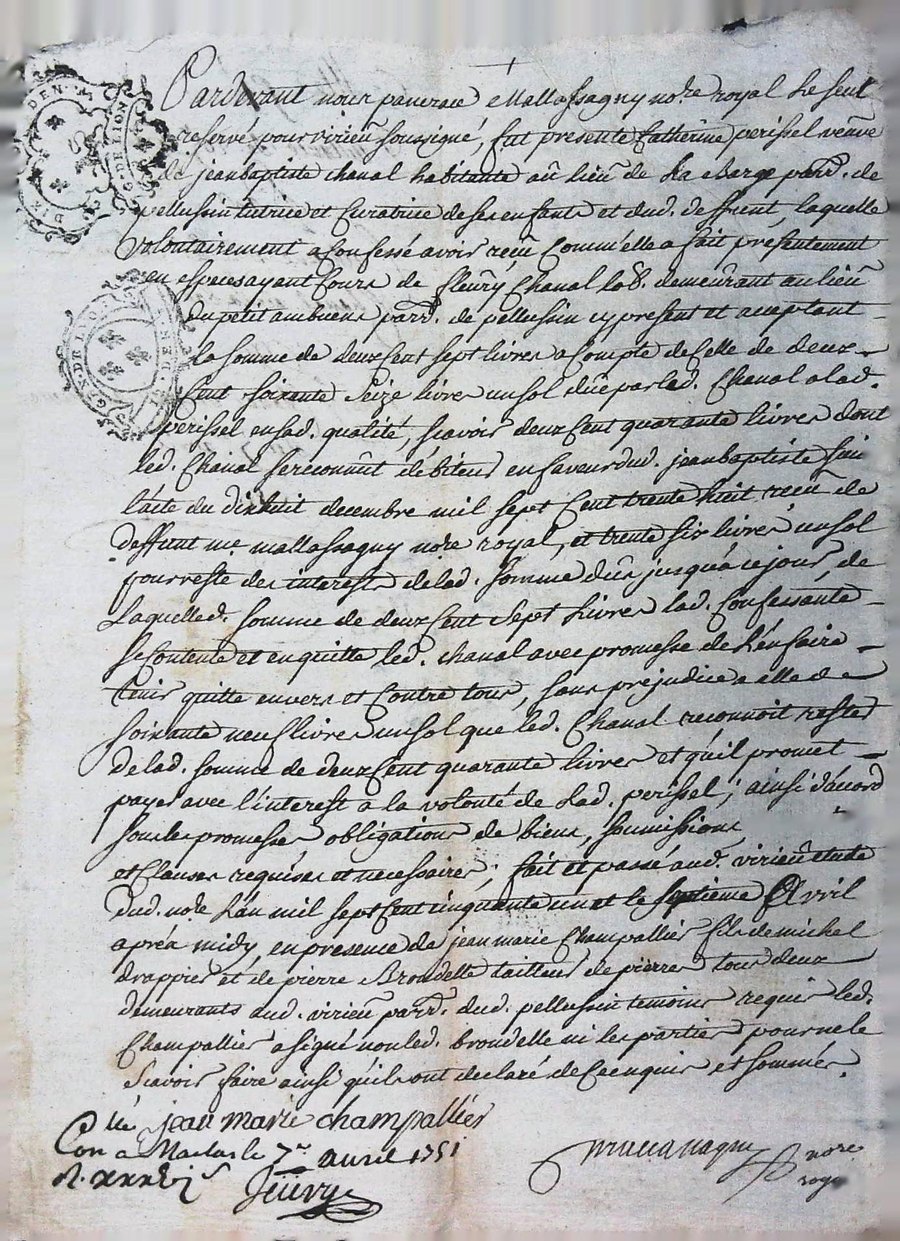 GN. DE LION
DIX DEN
GN. DE LION
Pardevant nous pancrace Mallassagny no.re royal Le seul
reservé pour virieu soussigné, fut presente Catherine perissel veuve
de jeanbaptiste chanal habitante au lieu de La Barge parr. de
pellussin tutrice et Curatrice de ses enfants et dud. deffunt, laquelle
volontairement a Confessé avoir reçeu Comm'elle a fait presentement
en especes ayant Cours de fleury Chanal lab. demeurant au lieu
du petit ambuens parr. de pellussin cy present et acceptant
la somme de deux Cent sept livres a Compte de Celle de deux
Cent soixante Seize livres un sol düe par led. Chanal a lad.
perissel en sad. qualité, scavoir deux Cent quarante livres dont
led. Chanal se reconnût débiteur en faveur dud. jeanbaptiste suiv.
l'acte du dix huit decembre mil sept Cent trente huit reçeu de
deffunt me mallassagny no.re royal, et trente six livres un sol
pour reste des interests de lad. somme dûs jusqu'à ce jour, de
Laquelle d. somme de deux Cent Sept Livres lad. Confessante
se Contente et en quitte led. chanal avec promesse de L'en faire
tenir quitte envers et Contre tous, sans prejudice a elle de
soixante neuf livres un sol que led. Chanal reconnoit rester
de lad. somme de deux Cent quarante livres et qu'il promet
payer avec l'interest a la volonté de Lad. perissel; ainsi d'accord
sous les promesses obligations de biens, soumissions
et Clauses requises et necessaires; fait et passé aud. virieu etude
dud. no.re L'an mil sept Cent cinquante un et le septieme Avril
après midy, en presence de jean marie Champallier fils de michel
drappier et de pierre Brondelle tailleur de pierre tous deux
demeurants aud. virieu parr. dud. pellussin temoins requis led.
Champallier a signé non led. brondelle ni les parties pour ne le
scavoir faire ainsi qu'ils ont declaré de Ce enquis et sommés.
jean marie champallier
Con a Maclas le 7me avril 1751
Mallassagny no.re
royal